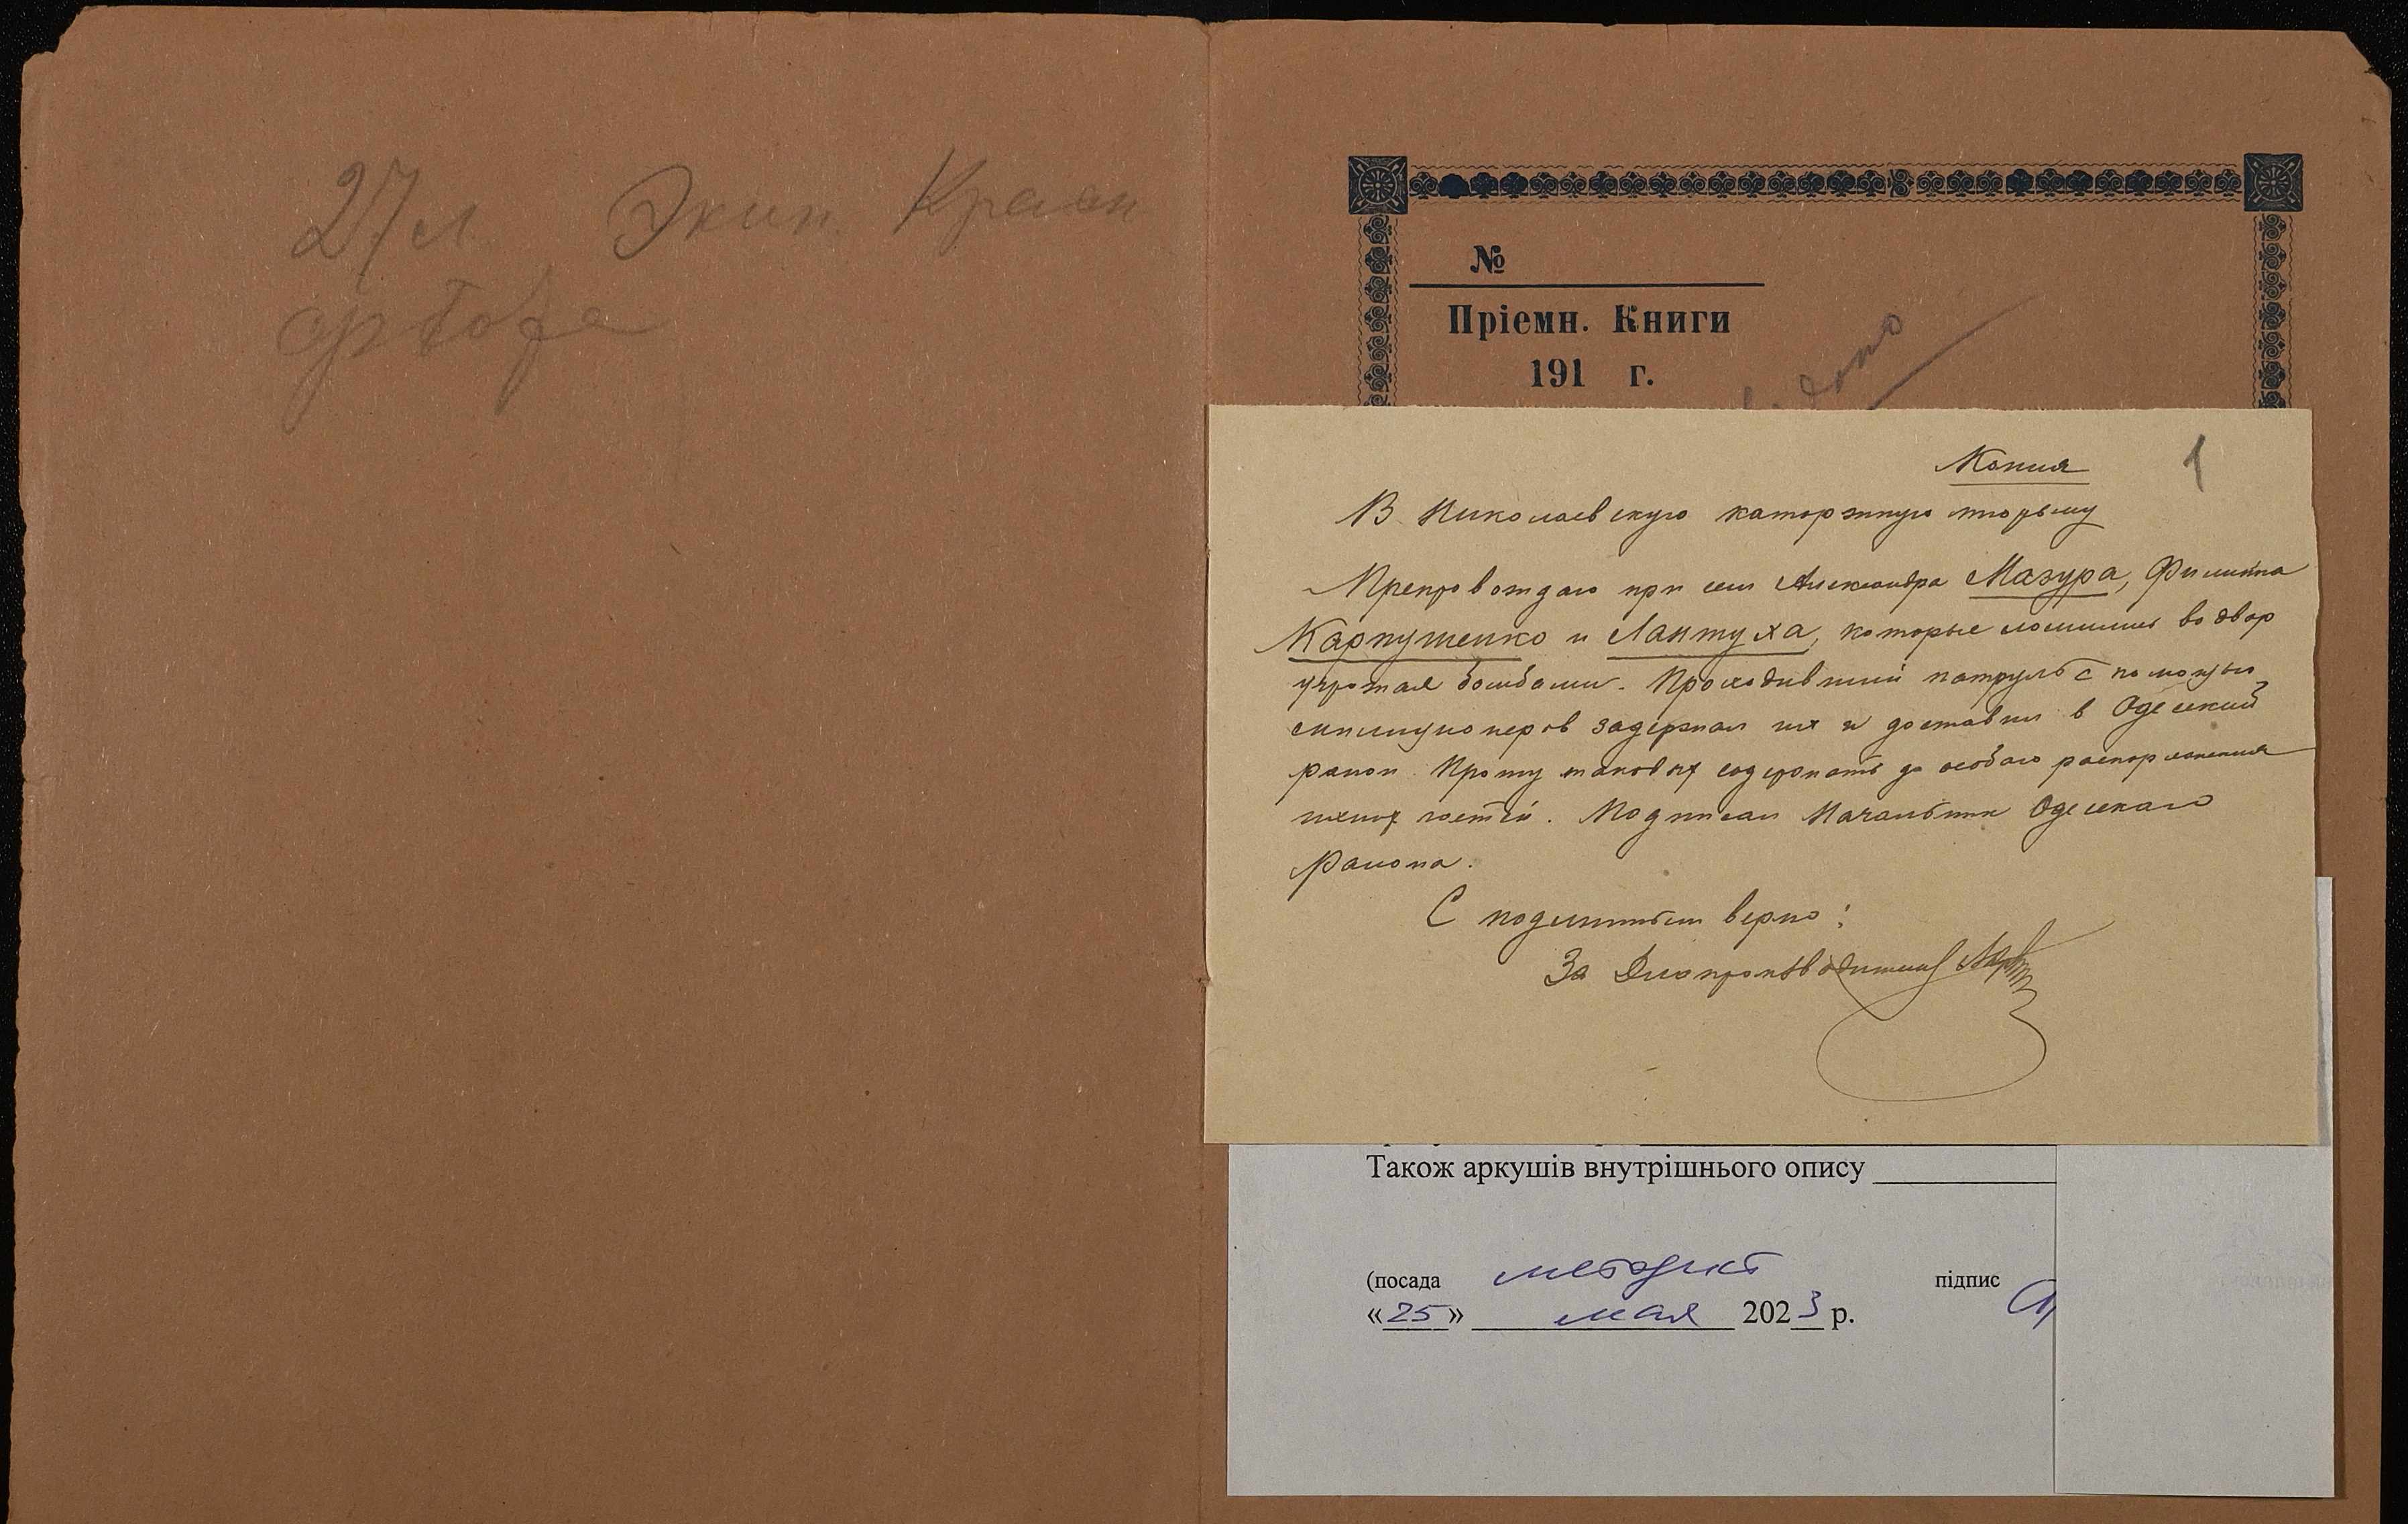 27 л Экип. Красн
№
Пріемн. Книги
191 г.
Копия
1
В Николаевскую каторжную тюрьму
Препровождаю при сем Александра Мазура, Филиппа
Карпушенко и Лантуха, которые ломились во двор
угрожая бомбами. Проходивший патруль с помощью
милиционеров задержал их и доставил в Одесский
район. Прошу таковых содержать до особаго распоряжения
властей. Подписал Начальник Одесскаго
Района.
С подлинным верно:
За Делопроизводителя
Також аркушів внутрішнього опису
(посада методист підпис
«25» мая 2023 р.